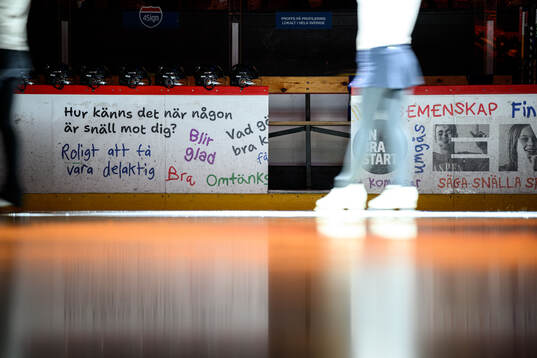 4Sign
PROFFS PÅ PROFILERING
LOKALT I HELA SVERIGE
Hur känns det när någon
är snäll mot dig?
Roligt att få
vara delaktig
Blir
glad
Bra
Vad g
bra k
få
Omtänks
EMENSKAP
Fin
EN
BRA
START
umgås
SÄGA SNÄLLA S